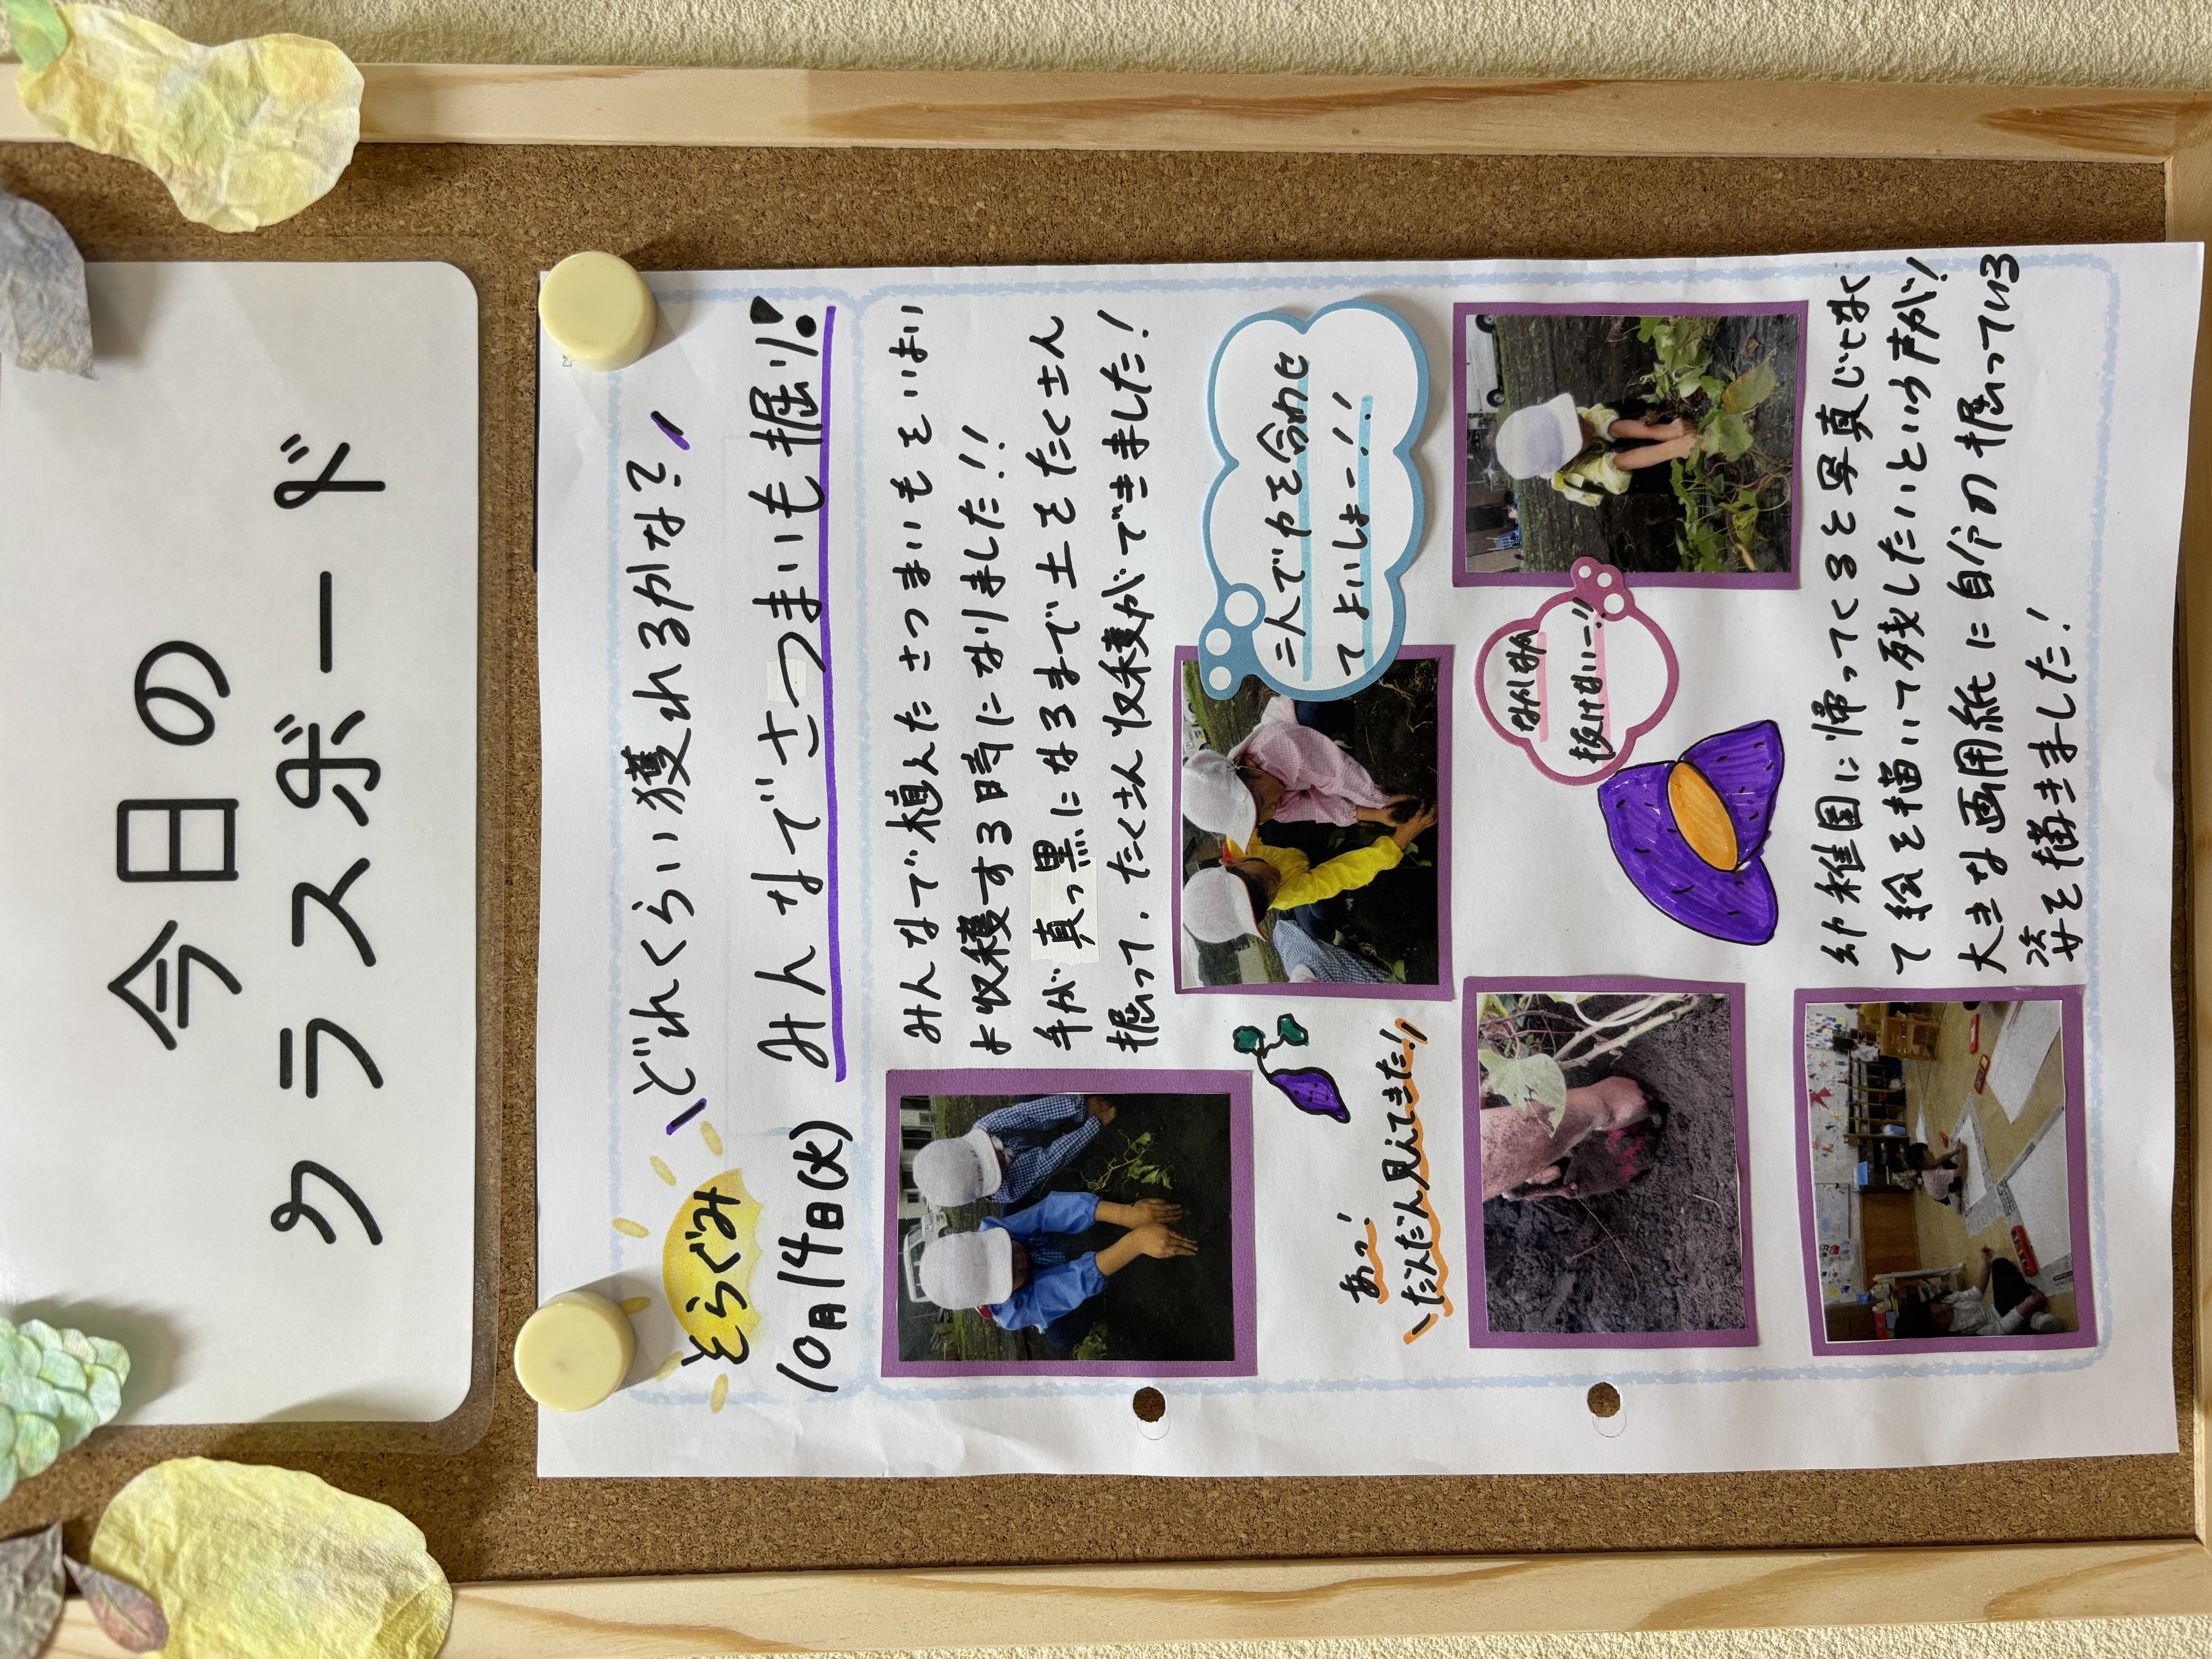 今日の
クラスボード
そらぐみ
\どれくらい獲れるかな?/
10月14日(火) みんなでさつまいも掘り!
みんなで植えたさつまいもをいよい
よ収穫する時になりました!!
手が真っ黒になるまで土をたくさん
掘って、たくさん収穫ができました!
二人で力を合わせ
てよいしょー!!
あっ!
\だんだん見えてきた!/
なかなか
抜けないー!!
幼稚園に帰ってくると写真じゃなく
て絵を描いて残したいという声が!
大きな画用紙に自分の掘っている
姿を描きました!